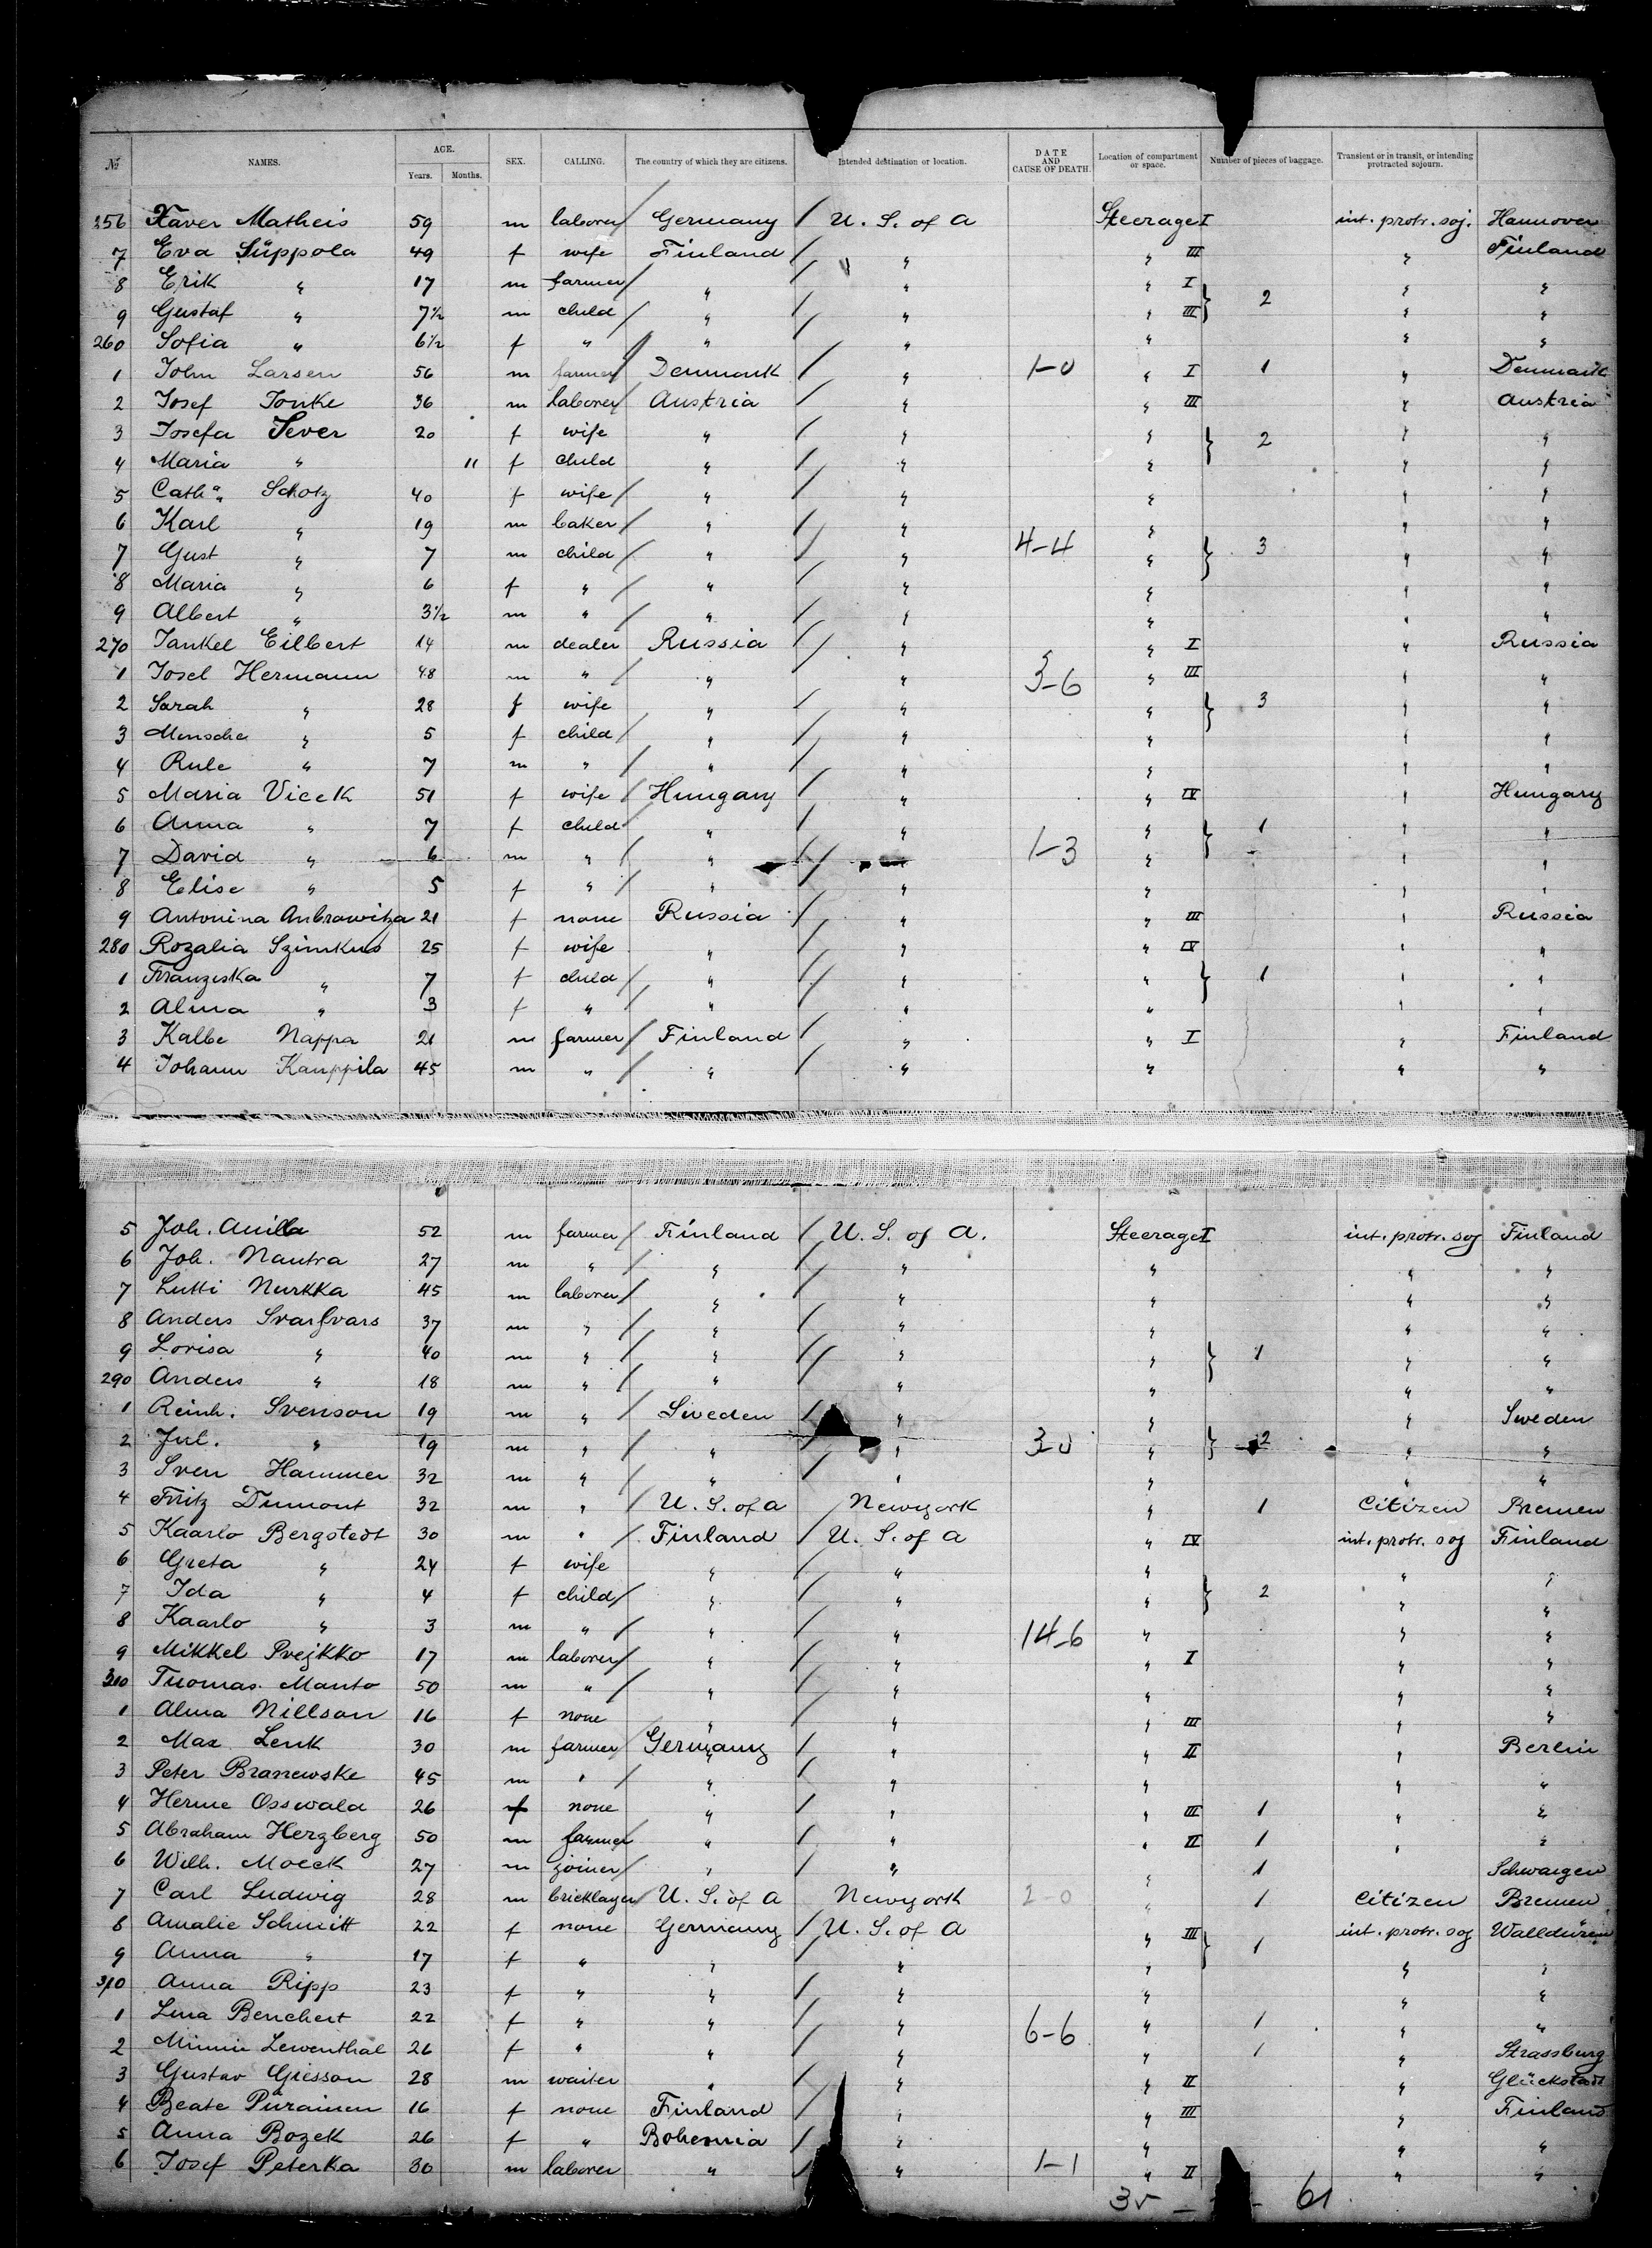 № NAMES. AGE. Years. Months. SEX. CALLING. The country of which they are citizens. Intended destination or location. DATE AND CAUSE OF DEATH. Location of compartment or space. Number of pieces of baggage. Transient or in transit, or intending protracted sojourn.
256 Xaver Matheis 59 m laborer Germany U. S. of A Steerage I int. protr. soj. Hannover
7 Eva Süppola 49 f wife Finland " " III " Finland
8 Erik " 17 m farmer " " " I " "
9 Gustaf " 7½ m child " " " III } 2 " "
260 Sofia " 6½ f " " " " " "
1 John Larsen 56 m farmer Denmark " 1-0 " I 1 " Denmark
2 Josef Jonke 36 m laborer Austria " " III " Austria
3 Josefa Sever 20 f wife " " " } 2 " "
4 Maria " 11 f child " " " " "
5 Cath" Schotz 40 f wife " " " " "
6 Karl " 19 m baker " " " " "
7 Gust " 7 m child " " 4-4 " } 3 " "
8 Maria " 6 f " " " " " "
9 Albert " 3½ m " " " " " "
270 Jankel Eilbert 14 m dealer Russia " " I " Russia
1 Josel Hermann 48 m " " " 3-6 " III " "
2 Sarah " 28 f wife " " " } 3 " "
3 Mensche " 5 f child " " " " "
4 Rule " 7 m " " " " " "
5 Maria Vicek 51 f wife Hungary " " IV " Hungary
6 Anna " 7 f child " " " } 1 " "
7 David " 6 m " " " 1-3 " " "
8 Elise " 5 f " " " " " "
9 Antonina Anbrowitza 21 f none Russia " " III " Russia
280 Rozalia Szimkus 25 f wife " " " IV " "
1 Franziska " 7 f child " " " } 1 " "
2 Alma " 3 f " " " " " "
3 Kalbe Nappa 21 m farmer Finland " " I " Finland
4 Johann Kauppila 45 m " " " " " "
5 Joh. Anilla 52 m farmer Finland U. S. of A. Steerage I int. protr. soj Finland
6 Joh. Nautra 27 m " " " " " "
7 Lutti Nurkka 45 m laborer " " " " "
8 Anders Svarfvars 37 m " " " " " "
9 Lovisa " 40 m " " " " } 1 " "
290 Anders " 18 m " " " " " "
1 Reinh. Svenson 19 m " Sweden " " " Sweden
2 Jul. " 19 m " " " 3-0 " } 2 " "
3 Sven Hammer 32 m " " " " " "
4 Fritz Dumont 32 m " U. S. of A Newyork " 1 Citizen Bremen
5 Kaarlo Bergstedt 30 m " Finland U. S. of A " IV int. protr. soj Finland
6 Greta " 24 f wife " " " " "
7 Ida " 4 f child " " " } 2 " "
8 Kaarlo " 3 m " " " 14-6 " " "
9 Mikkel Prejkko 17 m laborer " " " I " "
300 Tuomas Manto 50 m " " " " " "
1 Alma Nillson 16 f none " " " III " "
2 Max Lenk 30 m farmer Germany " " II " Berlin
3 Peter Branewske 45 m " " " " " "
4 Herme Osswald 26 f none " " " III 1 " "
5 Abraham Herzberg 50 m farmer " " " II 1 " "
6 Wilh. Moeck 27 m joiner " " " 1 Schwaigen
7 Carl Ludwig 28 m bricklayer U. S. of A Newyork 2-0 " 1 Citizen Bremen
8 Amalie Schmitt 22 f none Germany U. S. of A " III int. protr. soj Walldüren
9 Anna " 17 f " " " " } 1 " "
310 Anna Ripp 23 f " " " " " "
1 Lina Benchert 22 f " " " 6-6 " 1 " "
2 Minnie Lewenthal 26 f " " " " 1 " Strassburg
3 Gustav Giesson 28 m waiter " " " II " Glückstadt
4 Beate Pürainen 16 f none Finland " " III " Finland
5 Anna Bozek 26 f " Bohemia " " " "
6 Josef Peterka 30 m laborer " " 1-1 " II " "
35 — — 61